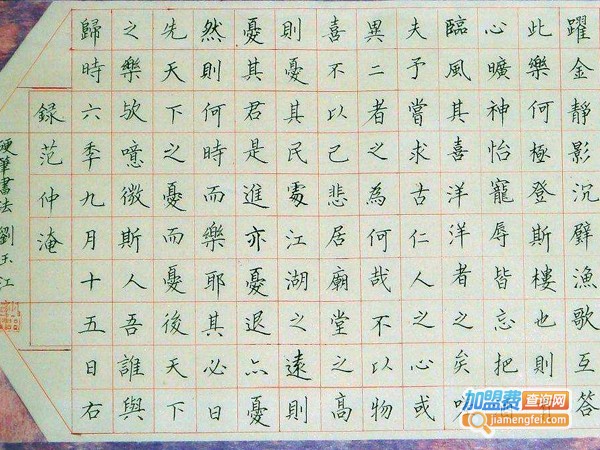 躍金靜影沉璧漁歌互答
此樂何極登斯樓也則
心曠神怡寵辱皆忘把
臨風其喜洋洋者之矣
夫予嘗求古仁人之心或
異二者之為何哉不以物
喜不以己悲居廟堂之高
則憂其民處江湖之遠則
憂其君是進亦憂退亦憂
然則何時而樂耶其必曰
先天下之憂而憂後天下
之樂歟噫微斯人吾誰與
歸時六秊九月十五日右
録范仲淹
硬筆書法劉玉江
加盟费查询网
jiamengfei.com